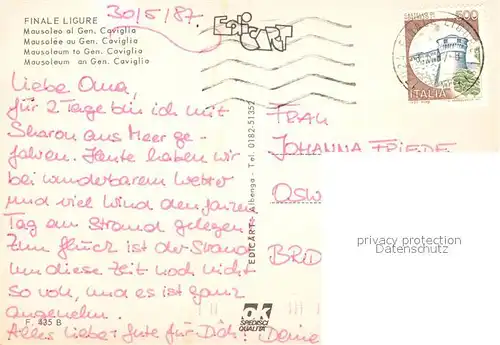 FINALE LIGURE
Mausoleo al Gen. Caviglia
Mausolée au Gen. Caviglia
Mausoleum to Gen. Caviglia
Mausoleum an Gen. Caviglia
30/5/87.
EDICART
500
ITALIA
Liebe Oma,
für 2 Tage bin ich mit
Sharon ans Meer ge-
fahren. Heute haben wir
bei wunderbarem Wetter
und viel Wind den ganzen
Tag am Strand gelegen.
Zum Glück ist der Strand
um diese Zeit noch nicht
so voll, und es ist ganz
angenehm.
Alles Liebe + Gute für Dich! Deine
EDICART - Albenga - Tel. 0182-51352
FRAU
JOHANNA FRIEDE
OSW
BRD
privacy protection
Datenschutz
F. 435 B
ok
SPEDISCI
QUALITÀ